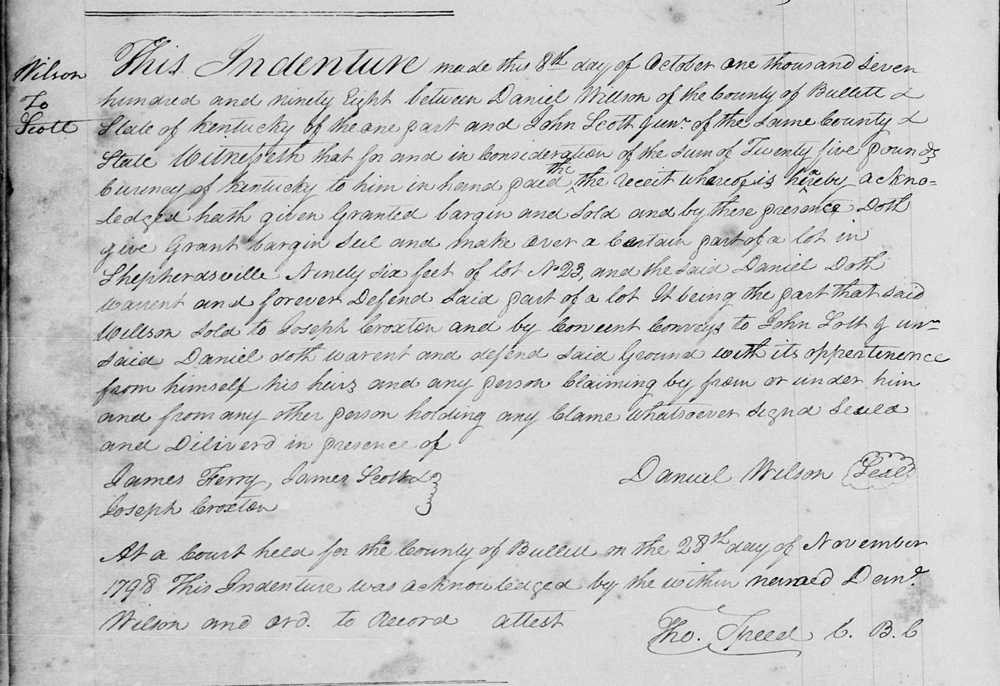 Wilson
To
Scott
This Indenture made this 8th day of October one thousand seven
hundred and ninety Eight between Daniel Willson of the County of Bullitt &
State of Kentucky of the one part and John Scott Junr. of the same County &
State Witnesseth that for and in Consideration of the sum of Twenty five pounds
Curincy of Kentucky to him in hand paid the the receit whereof is hereby ackno-
ledged hath given Granted bargin and sold and by these presence Doth
give Grant bargin sell and make over a Certain part of a lot in
Shepherdsville Ninety six feet of lot No 23, and the said Daniel Doth
warrent and forever Defend said part of a lot It being the part that said
Willson sold to Joseph Croxton and by Concent Conveys to John Scott Junr
said Daniel doth warent and defend said Ground with its appertinence
from himself his heirs and any person Claiming by from or under him
and from any other person holding any Clame whatsoever signd seald
and Diliverd in presence of
James Ferry, James Scott
Joseph Croxton
Daniel Wilson Seal
At a Court held for the County of Bullitt on the 28th day of November
1798 This Indenture was acknowledged by the within named Danl.
Wilson and ord. to Record attest
Tho. Speed C. B. C